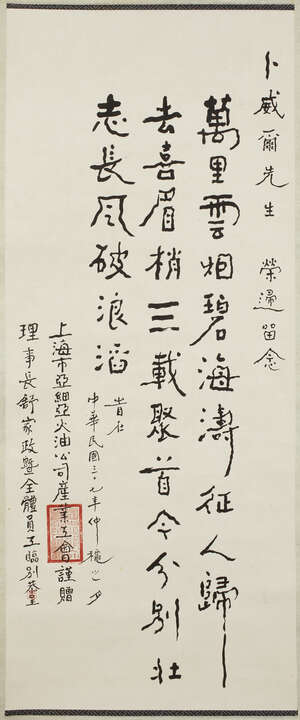 卜威爾先生 榮歸留念
萬里雲烟碧海濤征人歸
去喜眉梢三載聚首今分別壯
志長風破浪滔
時在
中華民國三十七年仲秋之夕
上海市亞細亞火油公司產業工會謹贈
理事長舒家政暨全體員工臨別恭呈